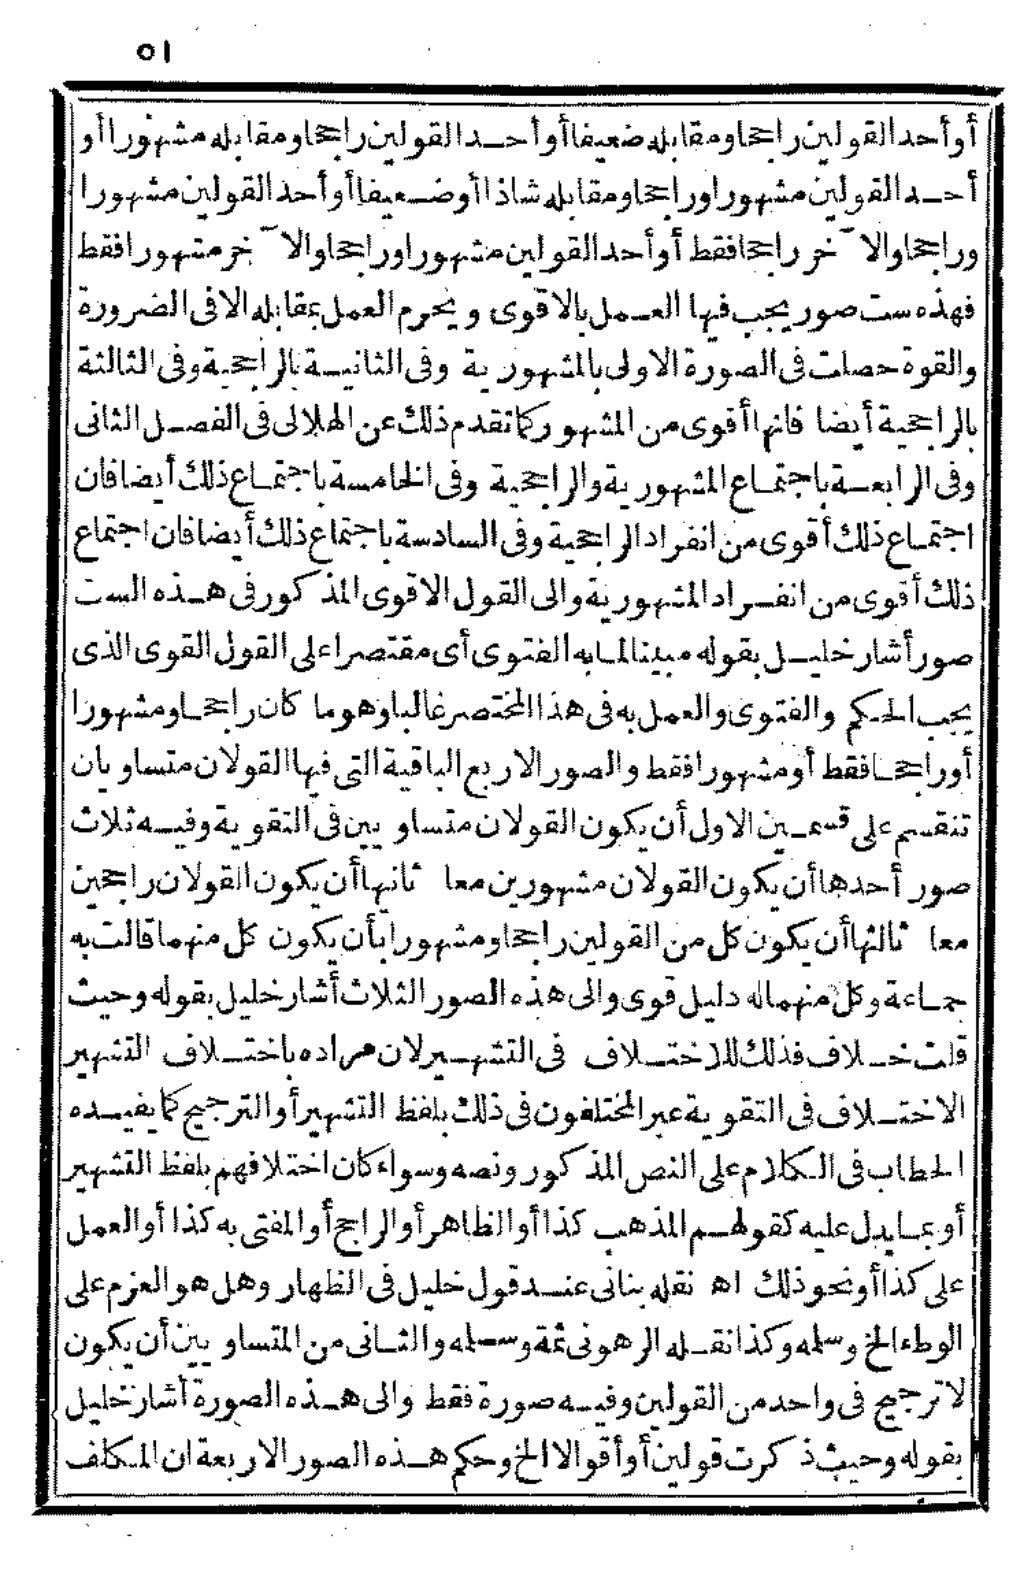 ٥١
أو أحد القولين راجحا ومقابله ضعيفا أو أحد القولين راجحا ومقابله مشهورا أو
أحد القولين مشهورا وراجحا ومقابله شاذا أو ضعيفا أو أحد القولين مشهورا
وراجحا والآخر راجحا فقط أو أحد القولين مشهورا وراجحا والآخر مشهورا فقط
فهذه ست صور يجب فيها العمل بالاقوى ويحرم العمل بمقابله الا فى الضرورة
والقوة حصلت فى الصورة الاولى بالمشهورية وفى الثانية بالراجحية وفى الثالثة
بالراجحية أيضا فانها أقوى من المشهور كما تقدم ذلك عن الهلالى فى الفصل الثانى
وفى الرابعة باجتماع المشهورية والراجحية وفى الخامسة باجتماع ذلك أيضا فان
اجتماع ذلك أقوى من انفراد الراجحية وفى السادسة باجتماع ذلك أيضا فان اجتماع
ذلك أقوى من انفراد المشهورية والى القول الاقوى المذكور فى هذه الست
صور أشار خليل بقوله مبينا لما به الفتوى أى مقتصرا على القول القوى الذى
يجب الحكم والفتوى والعمل به فى هذا المختصر غالبا وهو ما كان راجحا ومشهورا
أو راجحا فقط أو مشهورا فقط والصور الاربع الباقية التى فيها القولان متساويان
تنقسم على قسمين الاول أن يكون القولان متساويين فى التقوية وفيه ثلاث
صور أحدها أن يكون القولان مشهورين معا ثانيها أن يكون القولان راجحين
معا ثالثها أن يكون كل من القولين راجحا ومشهورا بأن يكون كل منهما قالت به
جماعة وكل منهما له دليل قوى والى هذه الصور الثلاث أشار خليل بقوله وحيث
قلت خلاف فذلك للاختلاف فى التشهير لان مراده باختلاف التشهير
الاختلاف فى التقوية عبر المختلفون فى ذلك بلفظ التشهير أو الترجيح كما يفيده
الحطاب فى الكلام على النص المذكور ونصه وسواء كان اختلافهم بلفظ التشهير
أو بما يدل عليه كقولهم المذهب كذا أو الظاهر أو الراجح أو المفتى به كذا أو العمل
على كذا أو نحو ذلك اه نقله بنانى عند قول خليل فى الظهار وهل هو العزم على
الوطء الخ وسلمه وكذا نقله الرهونى ثمة وسلمه والثانى من المتساويين أن يكون
لا ترجيح فى واحد من القولين وفيه صورة فقط والى هذه الصورة أشار خليل
بقوله وحيث ذكرت قولين أو أقوالا الخ وحكم هذه الصور الاربعة ان المكلف